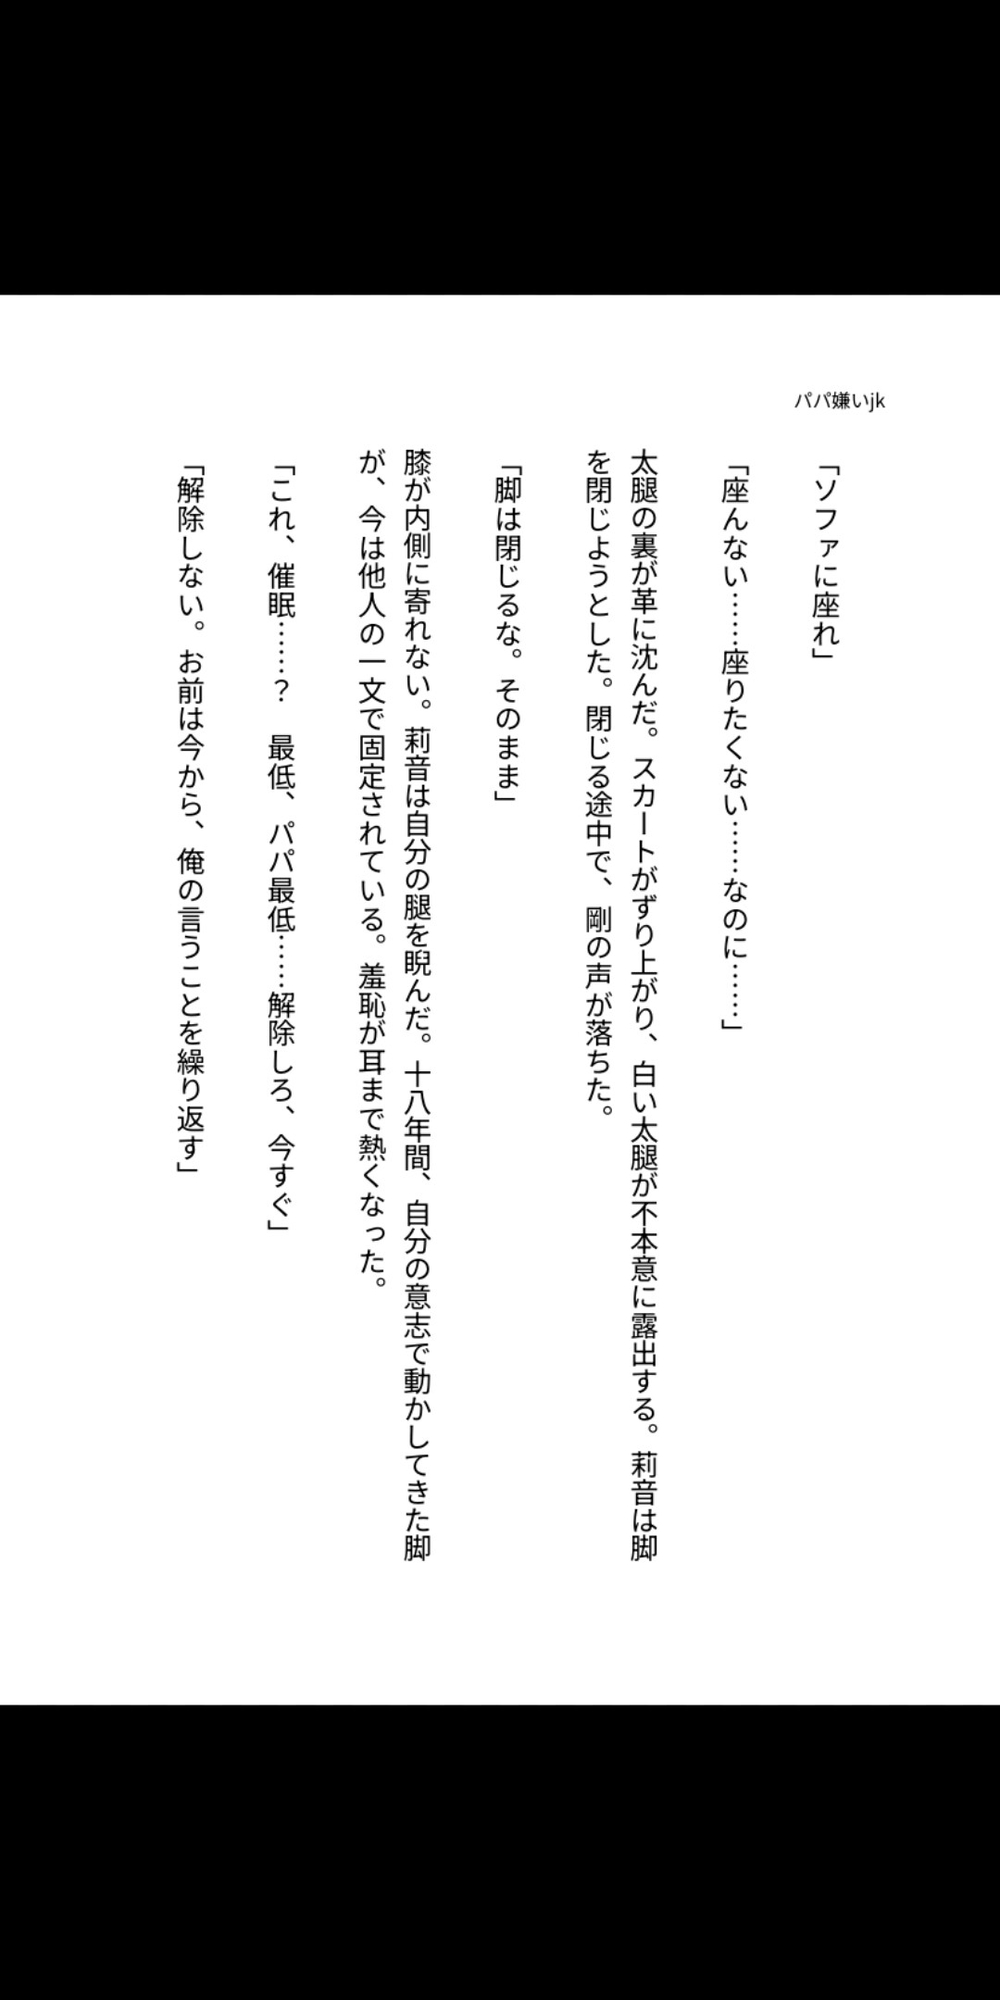 パパ嫌いjk
「ソファに座れ」
「座んない……座りたくない……なのに……」
太腿の裏が革に沈んだ。スカートがずり上がり、白い太腿が不本意に露出する。莉音は脚
を閉じようとした。閉じる途中で、剛の声が落ちた。
「脚は閉じるな。そのまま」
膝が内側に寄れない。莉音は自分の腿を睨んだ。十八年間、自分の意志で動かしてきた脚
が、今は他人の一文で固定されている。羞恥が耳まで熱くなった。
「これ、催眠……？　最低、パパ最低……解除しろ、今すぐ」
「解除しない。お前は今から、俺の言うことを繰り返す」